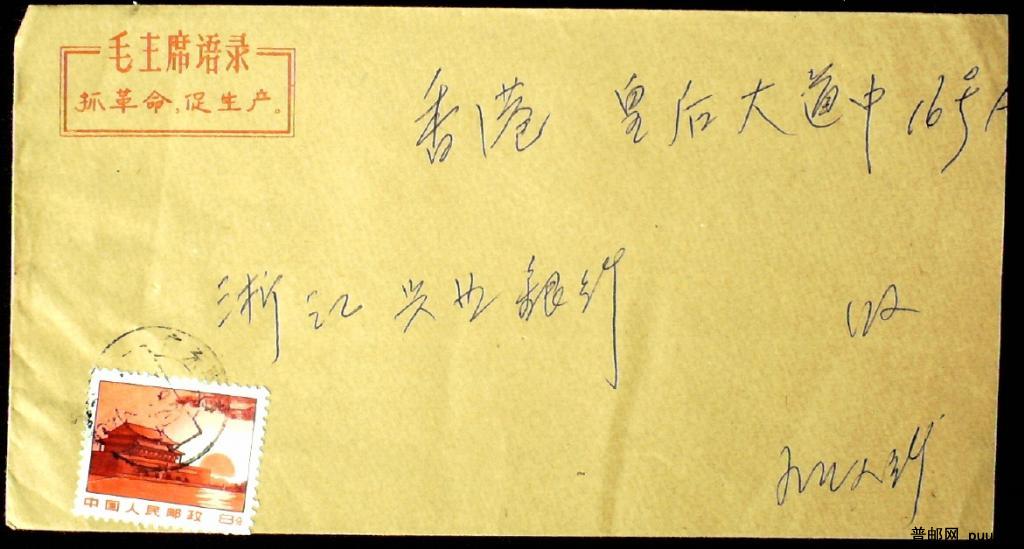 毛主席语录
抓革命,促生产。
香港 皇后大道中16号A
浙江兴业銀行
收
中国人民邮政 8分
普邮网 puu